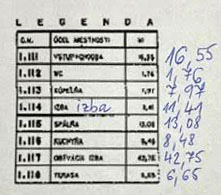 LEGENDA
Č.M. ÚČEL MIESTNOSTI M
1.111 VSTUP+CHODBA 16,55 16,55
1.112 WC 1,76 1,76
1.113 KÚPEĽŇA 7,97 7,97
1.114 IZBA izba 11,41 11,41
1.115 SPÁLŇA 13,08 13,08
1.116 KUCHYŇA 8,48 8,48
1.117 OBÝVACIA IZBA 42,75 42,75
1.118 TERASA 6,65 6,65